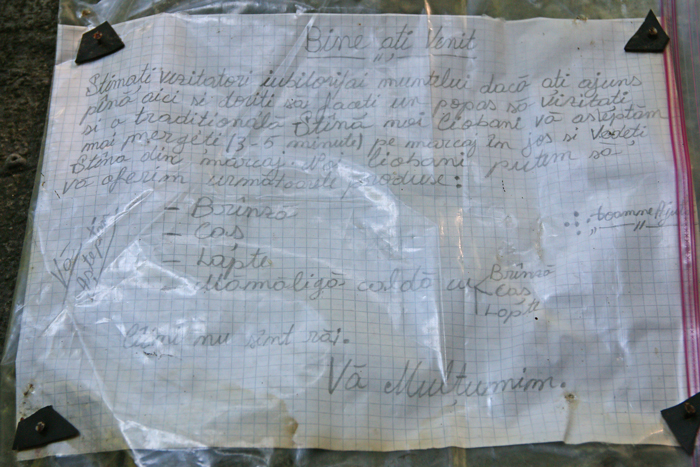 Bine ați Venit
Stimați vizitatori iubitori ai muntelui dacă ați ajuns
pînă aici si doriti să faceti un popas să vizitati
si o traditională Stînă noi Ciobani vă asteptăm
mai mergeti (3-5 minute) pe marcaj în jos si vedeți
Stîna din marcaj. Noi Ciobani putem să
vă oferim următoarele produse:
- Brînză
- Cas
- Lapte
- Mamaligă caldă cu Brînză
Cas
Lapte
Vă Asteptăm
Doamne Ajută
Cîini nu sînt răi.
Vă Mulțumim.